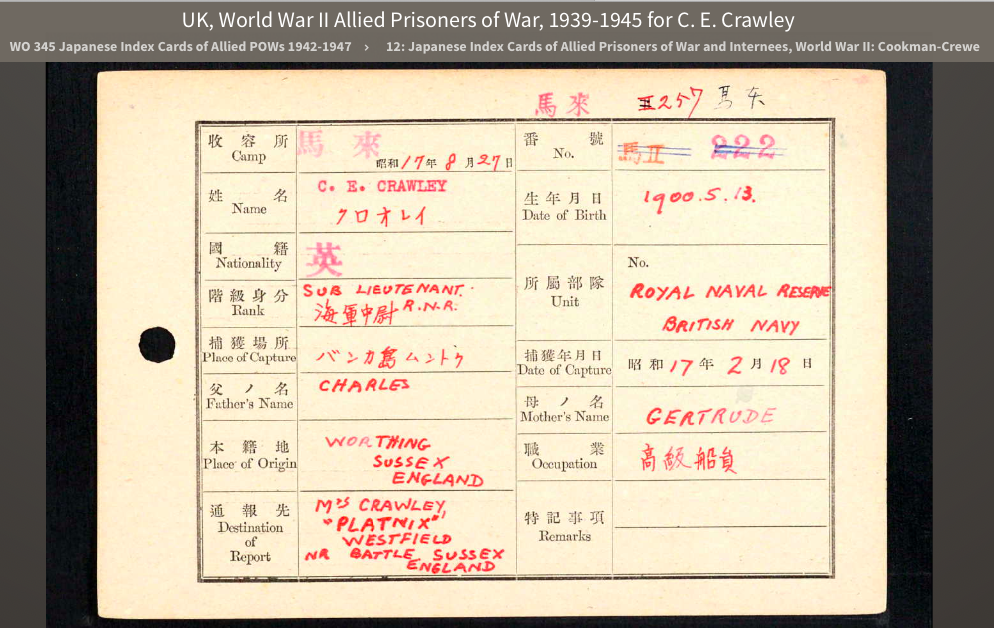 UK, World War II Allied Prisoners of War, 1939-1945 for C. E. Crawley
WO 345 Japanese Index Cards of Allied POWs 1942-1947 › 12: Japanese Index Cards of Allied Prisoners of War and Internees, World War II: Cookman-Crewe
馬來 II 257 馬来
收容所
Camp
馬來
昭和17年8月27日
番號
No.
馬II 222
姓名
Name
C. E. CRAWLEY
クロオレイ
生年月日
Date of Birth
1900.5.13.
國籍
Nationality
英
所屬部隊
Unit
No.
ROYAL NAVAL RESERVE
BRITISH NAVY
階級身分
Rank
SUB LIEUTENANT.
海軍中尉 R.N.R.
捕獲場所
Place of Capture
バンカ島ムントク
捕獲年月日
Date of Capture
昭和17年2月18日
父ノ名
Father's Name
CHARLES
母ノ名
Mother's Name
GERTRUDE
本籍地
Place of Origin
WORTHING
SUSSEX
ENGLAND
職業
Occupation
高級船員
通報先
Destination
of
Report
MRS CRAWLEY,
"PLATNIX"
WESTFIELD
NR BATTLE, SUSSEX
ENGLAND
特記事項
Remarks